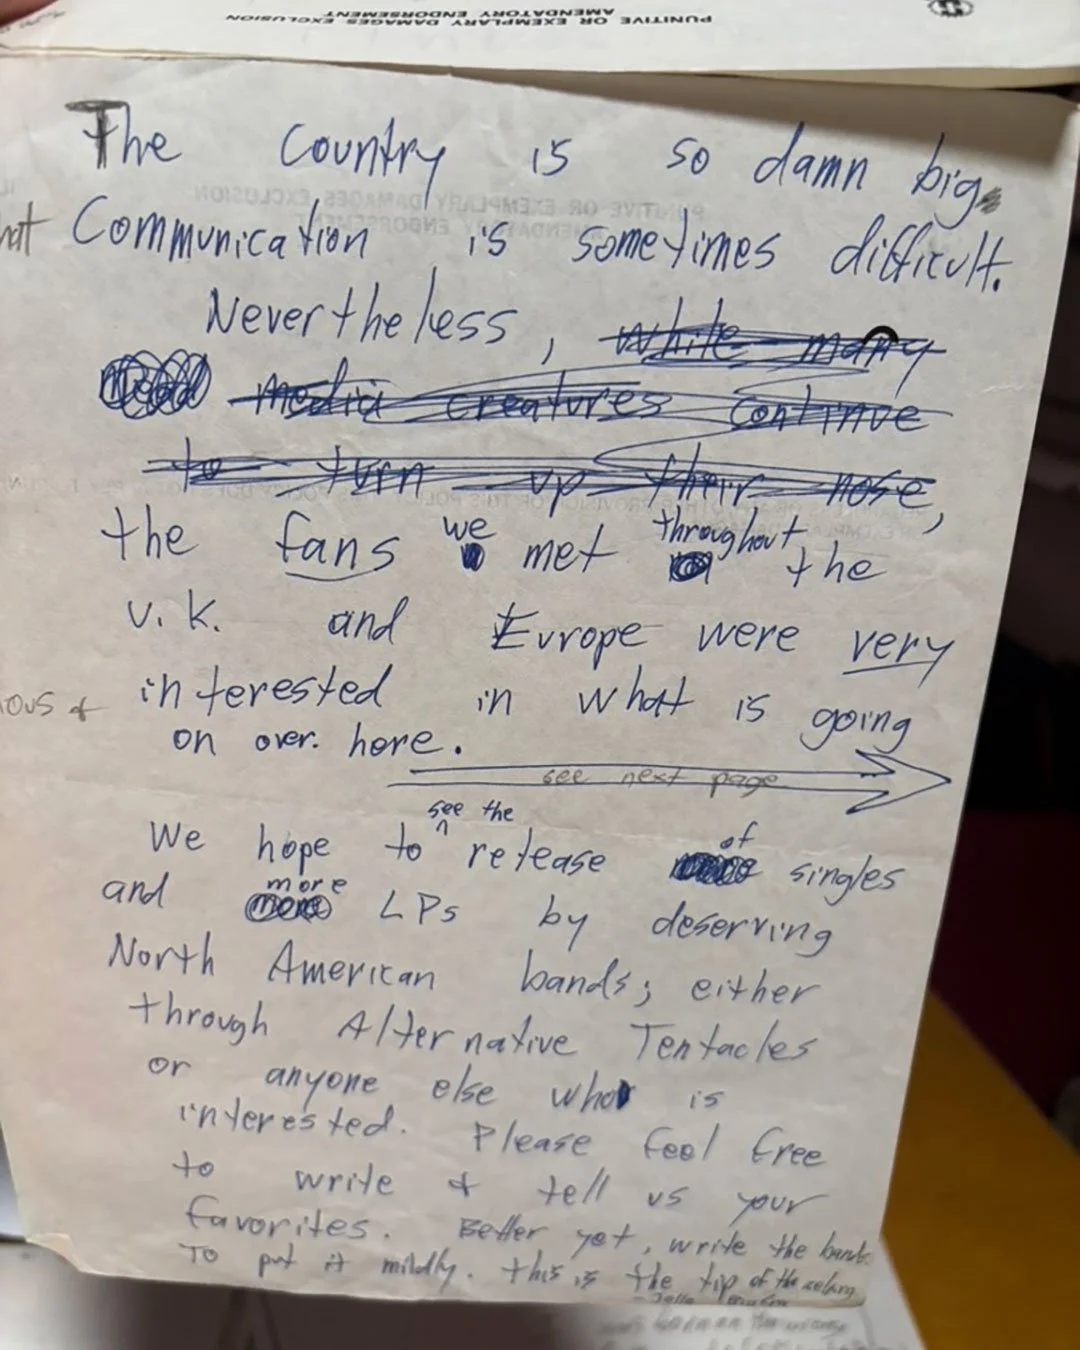 PUNITIVE OR EXEMPLARY DAMAGES EXCLUSION
AMENDATORY ENDORSEMENT
The Country is so damn big,
Communication is sometimes difficult.
Nevertheless, while many
media creatures continue
to turn up their nose,
the fans we met throughout the
U.K. and Europe were very
interested in what is going
on over here.
see next page
We hope to see the release of singles
and more LPs by deserving
North American bands; either
through Alternative Tentacles
or anyone else who is
interested. Please feel free
to write & tell us your
favorites. Better yet, write the bands
To put it mildly, this is the tip of the